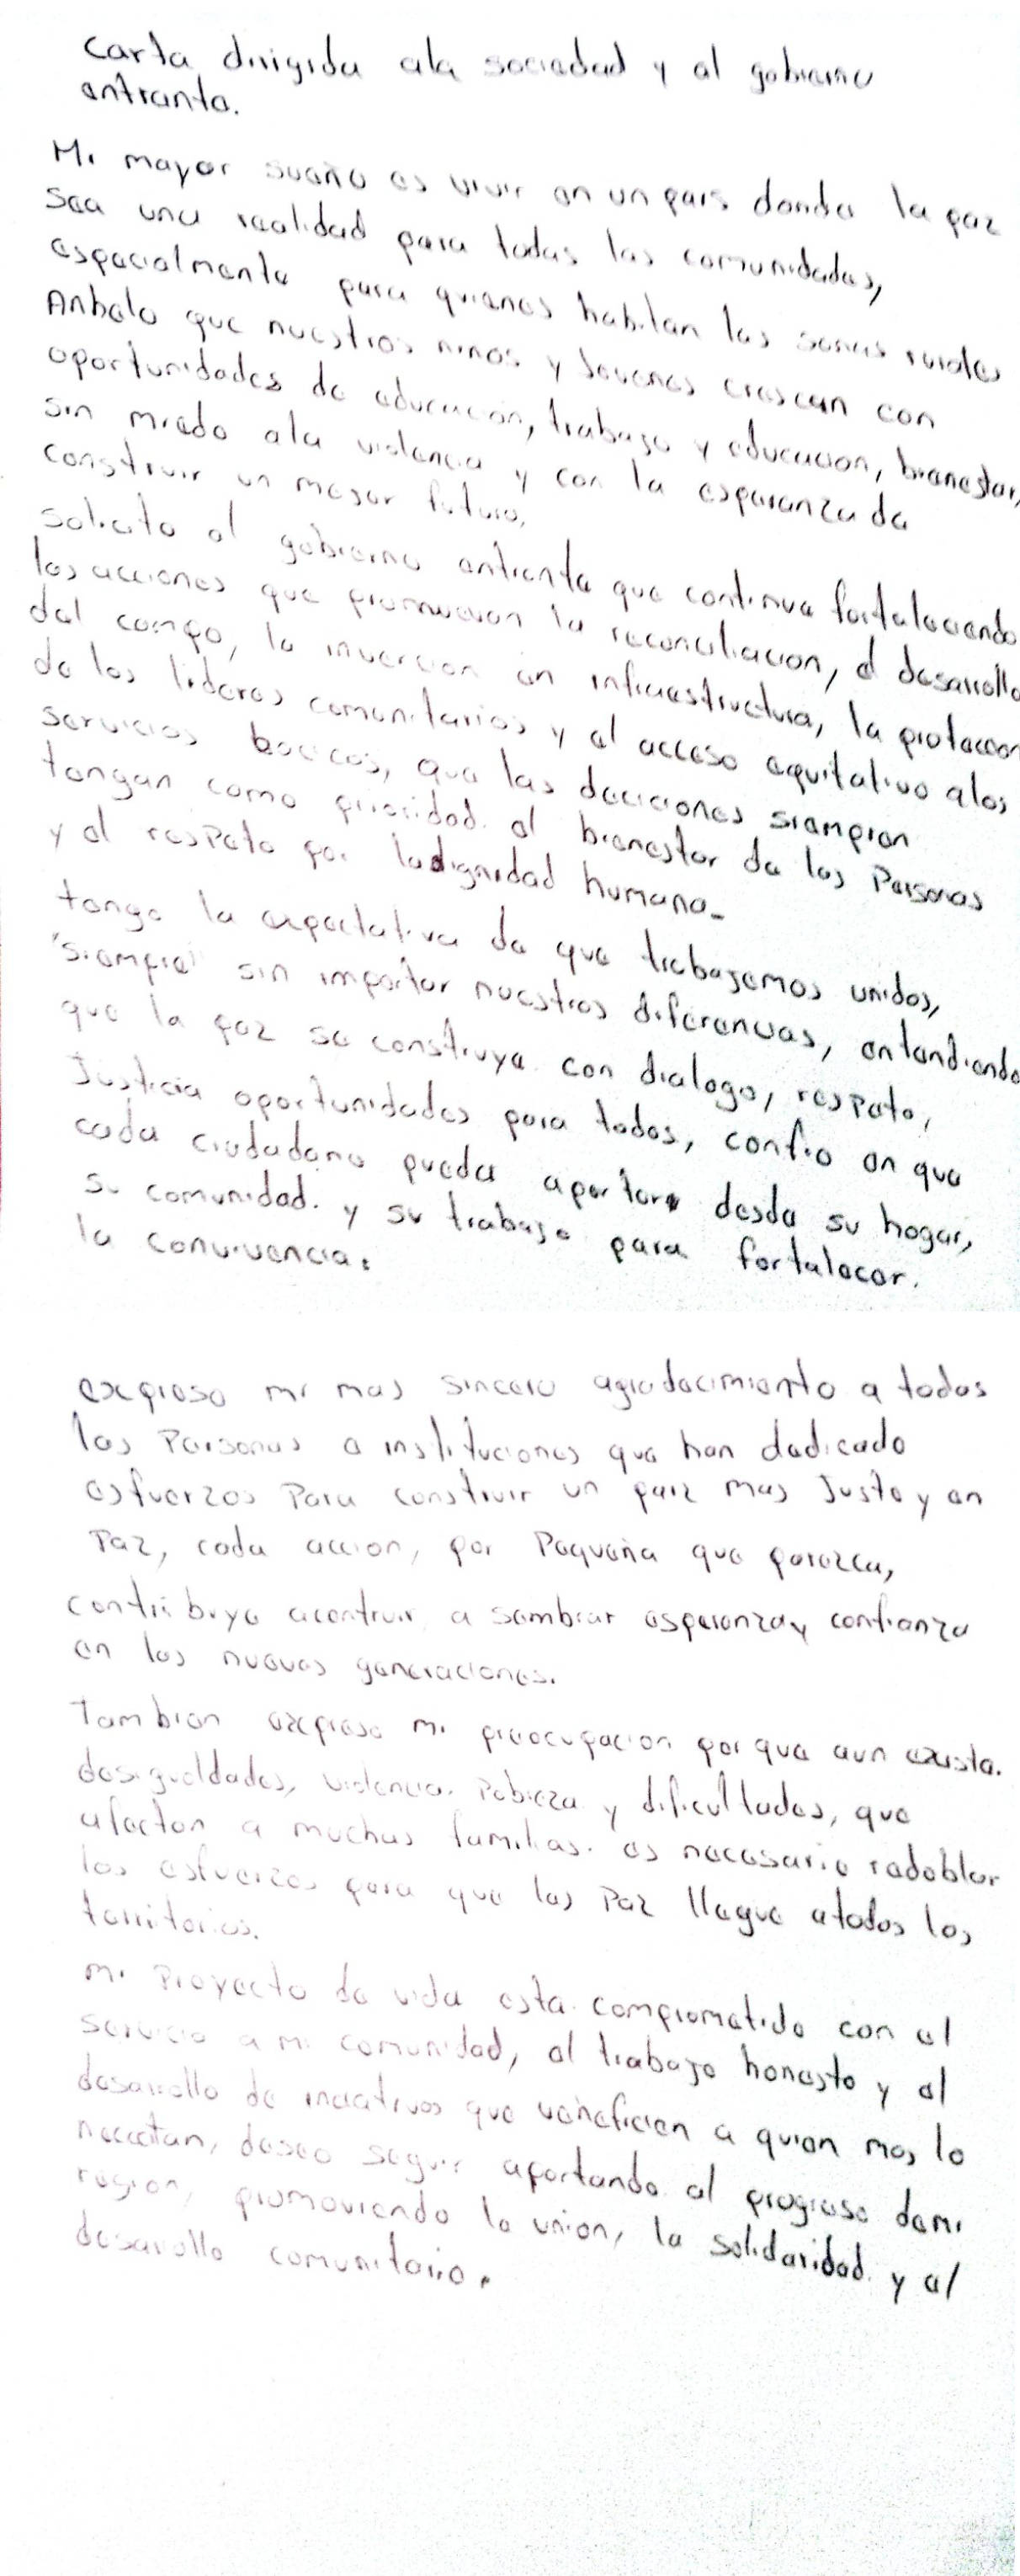 Carta dirigida ala sociedad y al gobierno
entrante.
Mi mayor sueño es vivir en un pais donde la paz
sea una realidad para todas las comunidades,
especialmente para quienes habitan las sonas rurales
Anhelo que nuestros niños y Jovenes crescan con
oportunidades de educación, trabajo y educacion, bienestar,
sin miedo ala violencia y con la esperanza de
construir un mejor futuro.
solicito al gobierno entrante que continue fortaleciendo
las acciones que promuevan la reconciliacion, el desarrollo
del campo, la invercion en infraestructura, la proteccion
de los lideres comunitarios y el acceso equitativo alos
servicios bacicos, que las deciciones siempren
tengan como prioridad el bienestar de las Personas
y el resPeto por ladignidad humana.
tengo la expectativa de que trabajemos unidos,
"siempre" sin importar nuestros diferencias, entendiendo
que la paz se construye con dialogo, resPeto,
Justicia oportunidades para todos, confio en que
cada ciudadano pueda aportar desde su hogar,
su comunidad y su trabajo para fortalecer.
la convivencia.
expreso mi mas sincero agradecimiento a todas
las Personas e instituciones que han dedicado
esfuerzos Para construir un paiz mas Justo y en
Paz, cada accion, por Pequeña que parezca,
contribuye acontruir a sembrar esperanza y confianza
en las nuevas generaciones.
Tambien expreso mi preocupacion por que aun exista.
desigualdades, violencia. Pobreza y dificultades, que
afectan a muchas familias. es necesario redoblar
los esfuerzos para que las Paz llegue atodos los
territorios.
mi Proyecto de vida esta comprometido con el
servicio a mi comunidad, al trabajo honesto y al
desarrollo de que veneficien a quien mas lo
deseo seguir aportando al progreso demi
region, promoviendo la union, la solidaridad y al
desarollo comunitario.